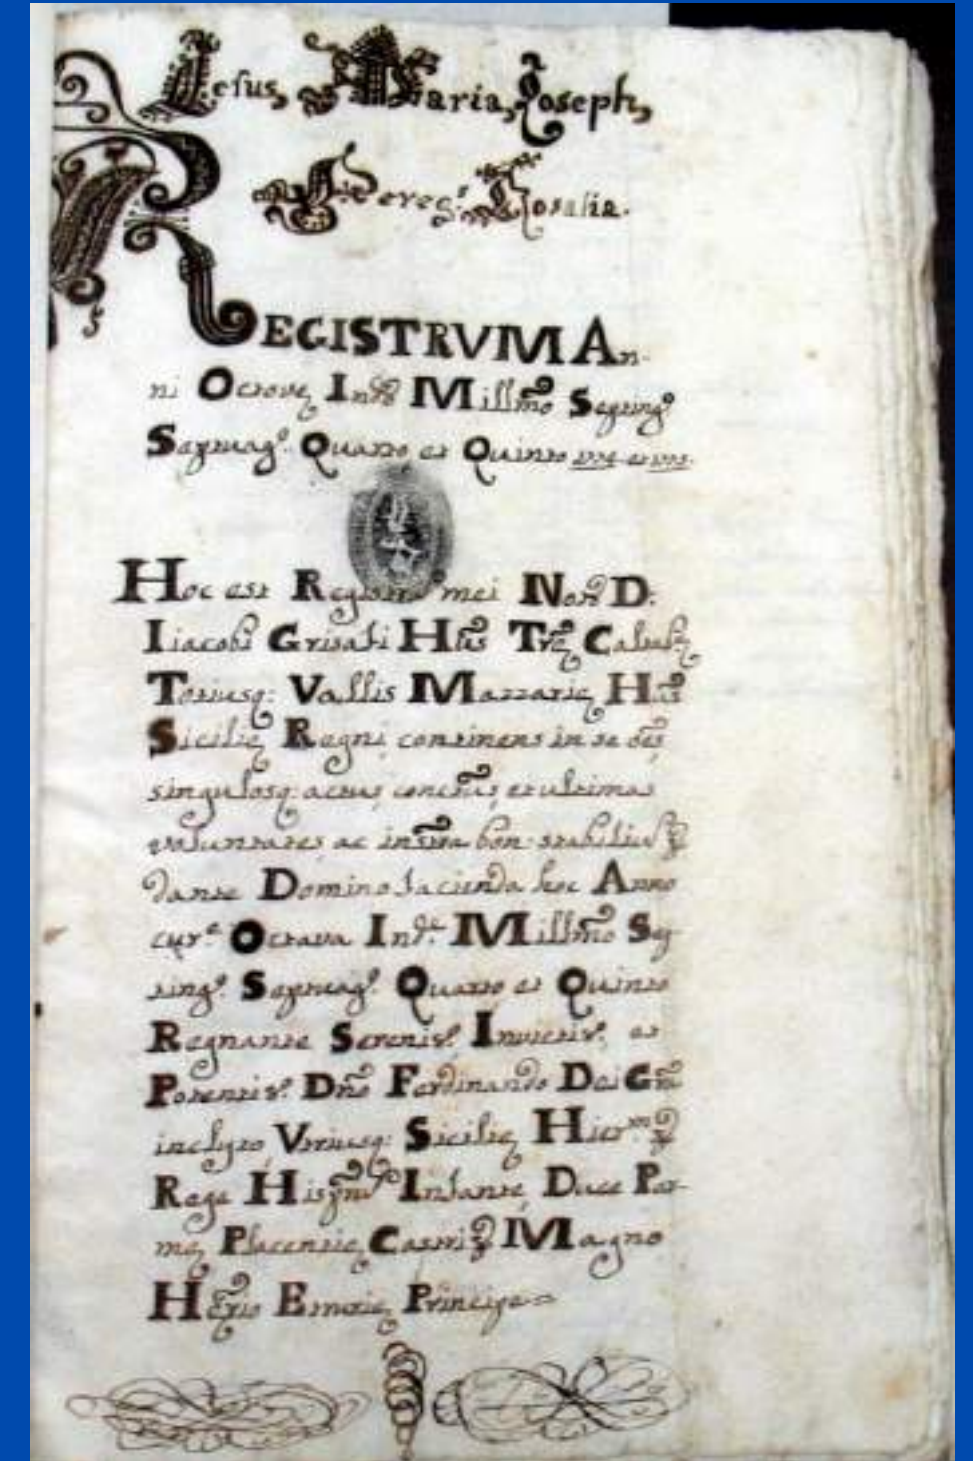 Jesus, Maria, Joseph,
Pereg.ˢ Rosalia.
REGISTRVM An-
ni Octovę Indᵉ Millm̃o Septingᵒ
Septuagᵒ. Quarto et Quinto
Hoc est Registrũ mei Notʳ D.
Iiacobi Grisafi Hūs Trę
Totiusq: Vallis Mazzarię Hūs
Sicilię Regni continens in se oēs
singulosq: actus, et ultimas
voluntates, ac bon: stabiliũ
dante Domino facienda hoc Anno
curᵗᵉ Octava Indᵉ Millm̃o Sep-
tingᵒ. Septuagᵒ. Quarto et Quinto
Regnante Serenisᵒ. Invictisᵒ. et
Potentisᵒ. Dño Ferdinando Dei Grã
inclyto Vtriusq: Sicilię Hierᵐ
Rege Hispm̃ Infante, Duce Par-
mę, Placentię, Castri, Magno
Hęrio Etrurię Principe